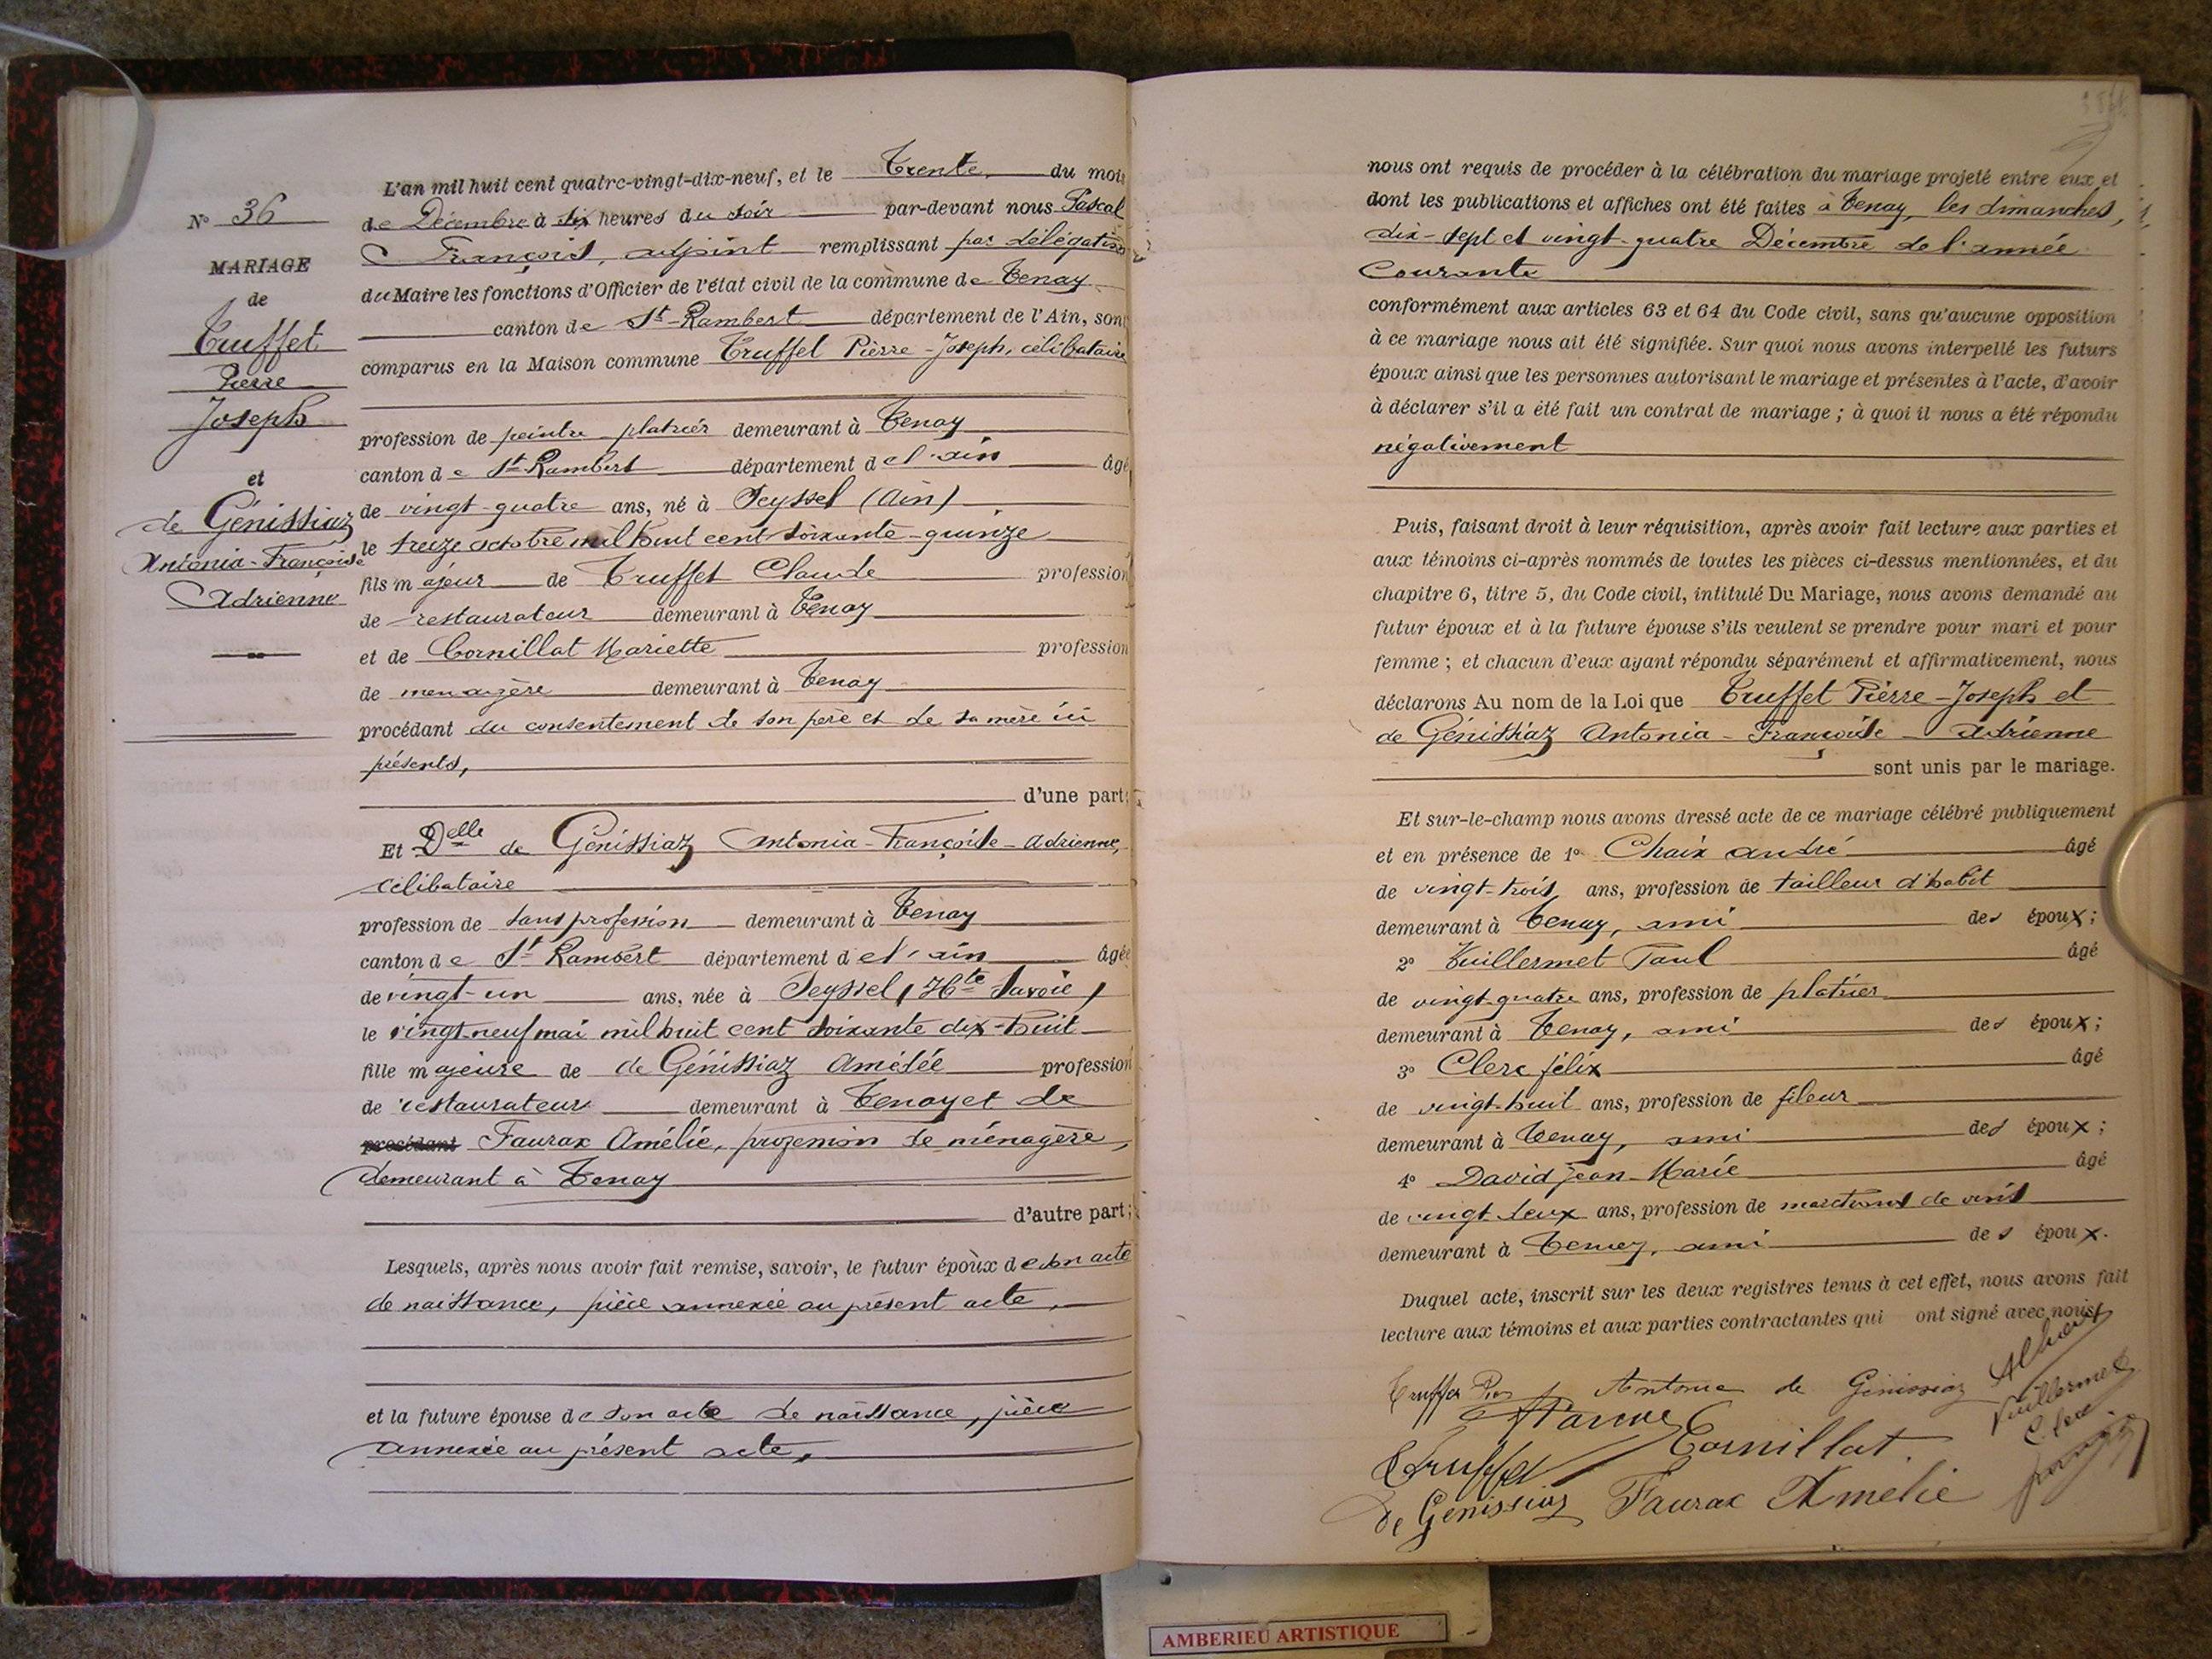 L'an mil huit cent quatre-vingt-dix-neuf, et le Trente du mois
N° 36
de Décembre à six heures du soir par-devant nous Pascal
François, adjoint remplissant par délégation
MARIAGE
du Maire les fonctions d'Officier de l'état civil de la commune de Tenay
de
canton de St-Rambert département de l'Ain, sont
Truffet
comparus en la Maison commune Truffet Pierre-Joseph, célibataire
Pierre
Joseph
profession de peintre platrier demeurant à Tenay
et
canton de St-Rambert département de l'ain âgé
de Génissiaz
de vingt-quatre ans, né à Seyssel (Ain)
Antonia-Françoise
le treize octobre mil huit cent soixante-quinze
Adrienne
fils majeur de Truffet Claude profession
de restaurateur demeurant à Tenay
et de Cornillat Mariette profession
de menagère demeurant à Tenay
procédant du consentement de son père et de sa mère ici
présents,
d'une part;
Et Delle de Génissiaz Antonia-Françoise-Adrienne,
célibataire
profession de sans profession demeurant à Tenay
canton de St Rambert département de l'ain âgée
de vingt-un ans, née à Seyssel (Hte Savoie)
le vingt-neuf mai mil huit cent soixante dix-huit
fille majeure de de Génissiaz Amédée profession
de restaurateur demeurant à Tenay et de
procédant Faurax Amélie, profession de ménagère,
demeurant à Tenay
d'autre part;
Lesquels, après nous avoir fait remise, savoir, le futur époux de son acte
de naissance, pièce annexée au présent acte,
et la future épouse de son acte de naissance, pièce
annexée au présent acte,
nous ont requis de procéder à la célébration du mariage projeté entre eux et
dont les publications et affiches ont été faites à Tenay, les dimanches,
dix-sept et vingt-quatre Décembre de l'année
Courante
conformément aux articles 63 et 64 du Code civil, sans qu'aucune opposition
à ce mariage nous ait été signifiée. Sur quoi nous avons interpellé les futurs
époux ainsi que les personnes autorisant le mariage et présentes à l'acte, d'avoir
à déclarer s'il a été fait un contrat de mariage ; à quoi il nous a été répondu
négativement
Puis, faisant droit à leur réquisition, après avoir fait lecture aux parties et
aux témoins ci-après nommés de toutes les pièces ci-dessus mentionnées, et du
chapitre 6, titre 5, du Code civil, intitulé Du Mariage, nous avons demandé au
futur époux et à la future épouse s'ils veulent se prendre pour mari et pour
femme ; et chacun d'eux ayant répondu séparément et affirmativement, nous
déclarons Au nom de la Loi que Truffet Pierre-Joseph et
de Génissiaz Antonia-Françoise-Adrienne
sont unis par le mariage.
Et sur-le-champ nous avons dressé acte de ce mariage célébré publiquement
et en présence de 1° Chaix andré âgé
de vingt-trois ans, profession de tailleur d'habit
demeurant à Tenay, ami des époux;
2° Vuillermet Paul âgé
de vingt-quatre ans, profession de platrier
demeurant à Tenay, ami des époux;
3° Clerc félix âgé
de vingt-huit ans, profession de fileur
demeurant à Tenay, ami des époux;
4° David Jean-Marie âgé
de vingt-deux ans, profession de marchand de vins
demeurant à Tenay, ami des époux.
Duquel acte, inscrit sur les deux registres tenus à cet effet, nous avons fait
lecture aux témoins et aux parties contractantes qui ont signé avec nous
Antonia de Génissiaz
Vuillermet
Clerc
Truffet
Cornillat
de Génissiaz Faurax Amélie
AMBERIEU ARTISTIQUE